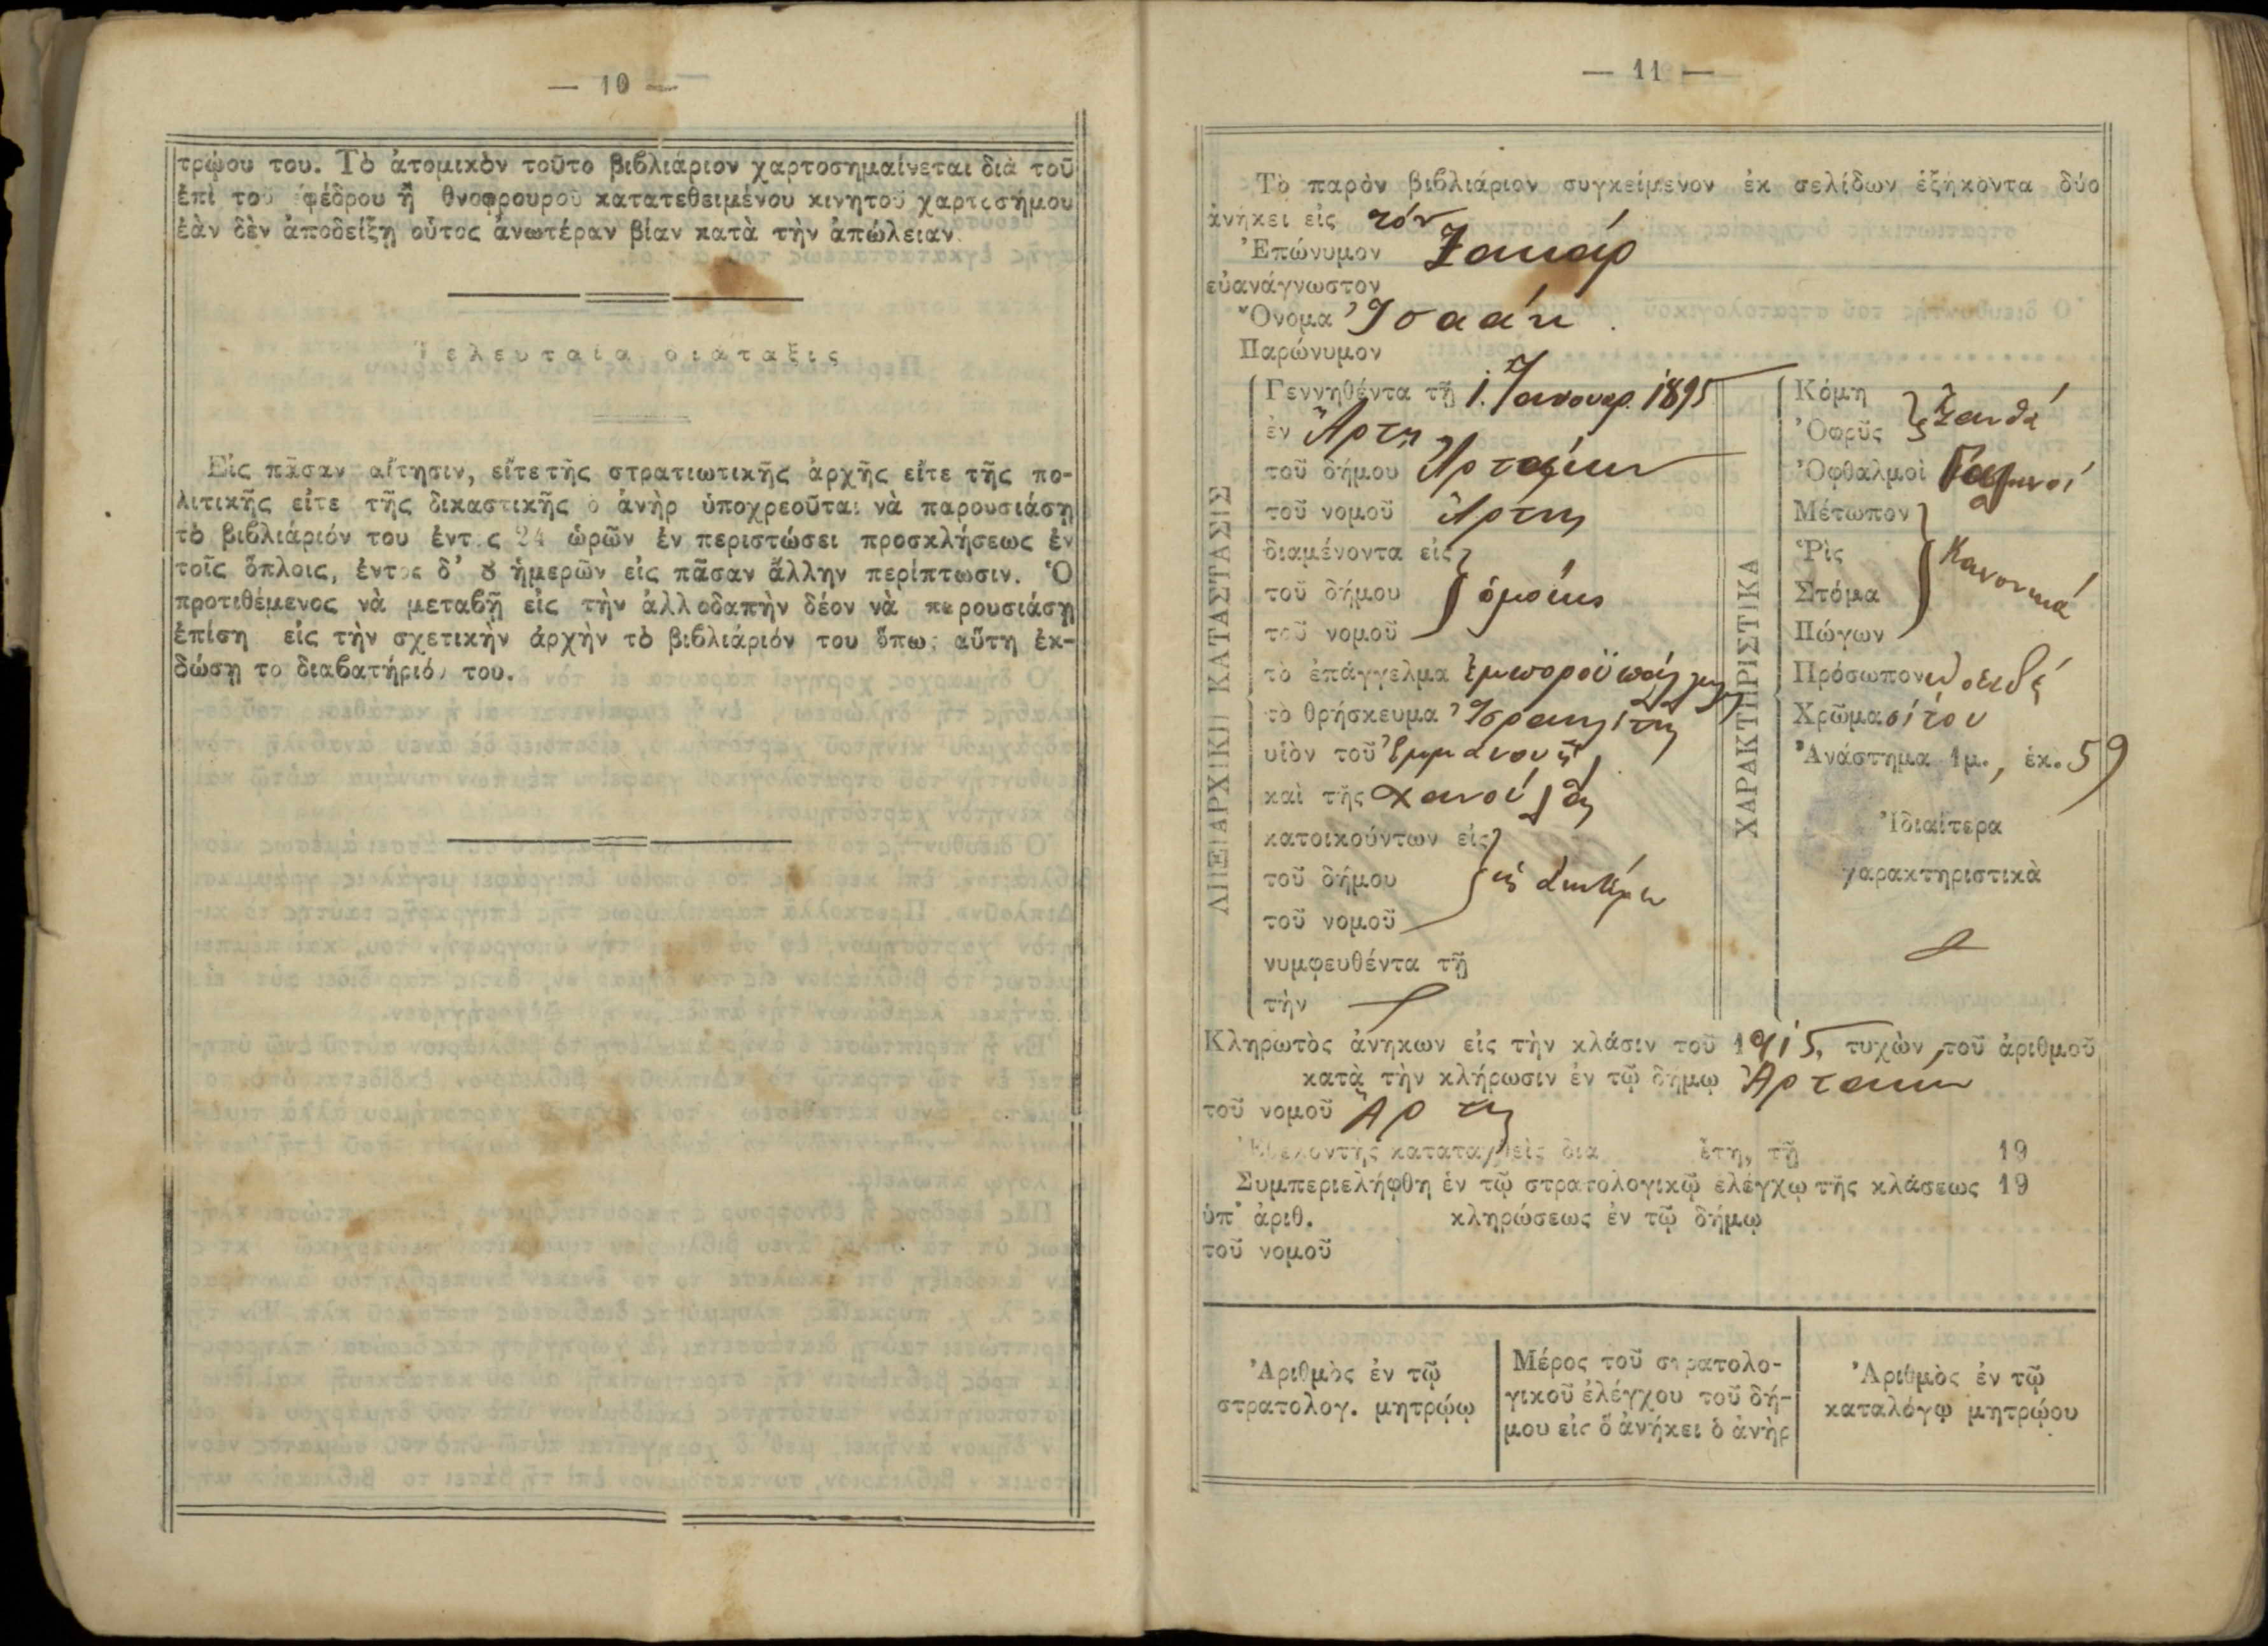 — 10 —
τρῴου του. Τὸ ἀτομικὸν τοῦτο βιβλιάριον χαρτοσημαίνεται διὰ τοῦ
ἐπὶ τοῦ ἐφέδρου ἢ θνοφρουροῦ κατατεθειμένου κινητοῦ χαρτοσήμου
ἐὰν δὲν ἀποδείξῃ οὗτος ἀνωτέραν βίαν κατὰ τὴν ἀπώλειαν.
Τελευταία διάταξις
Εἰς πᾶσαν αἴτησιν, εἴτε τῆς στρατιωτικῆς ἀρχῆς εἴτε τῆς πο-
λιτικῆς εἴτε τῆς δικαστικῆς ὁ ἀνὴρ ὑποχρεοῦται νὰ παρουσιάσῃ
τὸ βιβλιάριόν του ἐντὸς 24 ὡρῶν ἐν περιστώσει προσκλήσεως ἐν
τοῖς ὅπλοις, ἐντὸς δ' 8 ἡμερῶν εἰς πᾶσαν ἄλλην περίπτωσιν. Ὁ
προτιθέμενος νὰ μεταβῇ εἰς τὴν ἀλλοδαπὴν δέον νὰ παρουσιάσῃ
ἐπίση εἰς τὴν σχετικὴν ἀρχὴν τὸ βιβλιάριόν του ὅπως αὕτη ἐκ-
δώσῃ το διαβατήριόν του.
— 11 —
Τὸ παρὸν βιβλιάριον συγκείμενον ἐκ σελίδων ἑξήκοντα δύο
ἀνήκει εἰς τόν
Ἐπώνυμον Ζακάρ
εὐανάγνωστον
Ὄνομα Ἰσαάκ
Παρώνυμον
ΛΗΞΙΑΡΧΙΚΗ ΚΑΤΑΣΤΑΣΙΣ
Γεννηθέντα τῇ 1. Ἰανουαρ. 1895
ἐν Ἄρτῃ
τοῦ δήμου Ἀρταίων
τοῦ νομοῦ Ἄρτης
διαμένοντα εἰς
τοῦ δήμου ὁμοίως
τοῦ νομοῦ
τὸ ἐπάγγελμα ἐμποροϋπάλληλον
τὸ θρήσκευμα Ἰσραηλίτης
υἱὸν τοῦ Ἐμμανουήλ
καὶ τῆς Χανούλας
κατοικούντων εἰς
τοῦ δήμου ὡς ἀνωτέρω
τοῦ νομοῦ
νυμφευθέντα τῇ
τὴν
ΧΑΡΑΚΤΗΡΙΣΤΙΚΑ
Κόμη
Ὀφρῦς ξανθά
Ὀφθαλμοὶ Γαλανοί
Μέτωπον
Ῥὶς
Στόμα Κανονικά
Πώγων
Πρόσωπον ὠοειδές
Χρῶμα σίτου
Ἀνάστημα 1μ., ἑκ. 59
Ἰδιαίτερα
χαρακτηριστικὰ
Κληρωτὸς ἀνηκων εἰς τὴν κλάσιν τοῦ 1915, τυχὼν τοῦ ἀριθμοῦ
κατὰ τὴν κλήρωσιν ἐν τῷ δήμῳ Ἀρταίων
τοῦ νομοῦ Ἄρτης
Ἐθελοντὴς καταταχθεὶς δια ἔτη, τῇ 19
Συμπεριελήφθη ἐν τῷ στρατολογικῷ ἐλέγχῳ τῆς κλάσεως 19
ὑπ' ἀριθ. κληρώσεως ἐν τῷ δήμῳ
τοῦ νομοῦ
Ἀριθμὸς ἐν τῷ
στρατολογ. μητρῴῳ
Μέρος τοῦ στρατολο-
γικοῦ ἐλέγχου τοῦ δή-
μου εἰς ὃ ἀνήκει ὁ ἀνὴρ
Ἀριθμὸς ἐν τῷ
καταλόγῳ μητρῴου